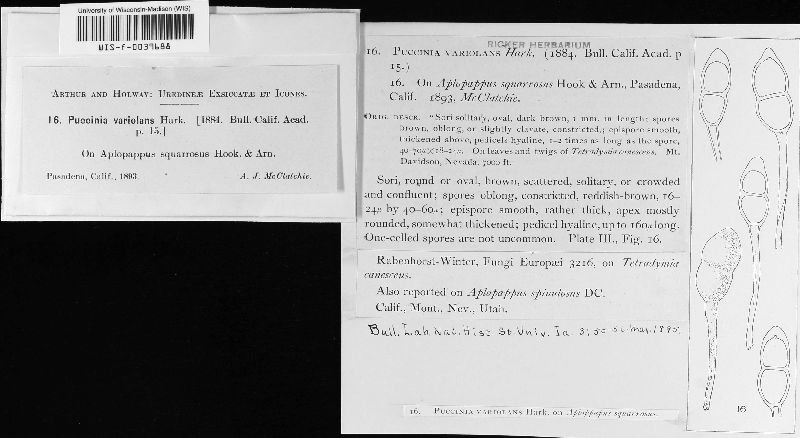 University of Wisconsin-Madison (WIS)
WIS-f-0039688
ARTHUR AND HOLWAY: UREDINEÆ EXSICCATÆ ET ICONES.
16. Puccinia variolans Hark. [1884. Bull. Calif. Acad.
p. 15.]
On Aplopappus squarrosus Hook. & Arn.
Pasadena, Calif., 1893. A. J. McClatchie.
RICKER HERBARIUM
16. PUCCINIA VARIOLANS Hark. (1884. Bull. Calif. Acad. p
15.)
16. On Aplopappus squarrosus Hook & Arn., Pasadena,
Calif. 1893, McClatchie.
ORIG. DESCR. "Sori solitary, oval, dark brown, 1 mm. in length; spores
brown, oblong, or slightly clavate, constricted,; epispore smooth,
thickened above, pedicels hyaline, 1-2 times as long as the spore,
On leaves and twigs of Tetradymia canescens. Mt.
Davidson, Nevada, 7000 ft.
Sori, round or oval, brown, scattered, solitary, or crowded
and confluent; spores oblong, constricted, reddish-brown, 16–
24µ by 40–60µ; epispore smooth, rather thick, apex mostly
rounded, somewhat thickened; pedicel hyaline, up to 160µ long.
One-celled spores are not uncommon. Plate III., Fig. 16.
Rabenhorst-Winter, Fungi Europæi 3216, on Tetradymia
canescens.
Also reported on Aplopappus spinulosus DC.
Calif., Mont., Nev., Utah.
Bull. Lab. Nat. Hist. St. Univ. Ia. 3: Mar. 1895.
16. PUCCINIA VARIOLANS Hark. on Aplopappus squarrosus.
16